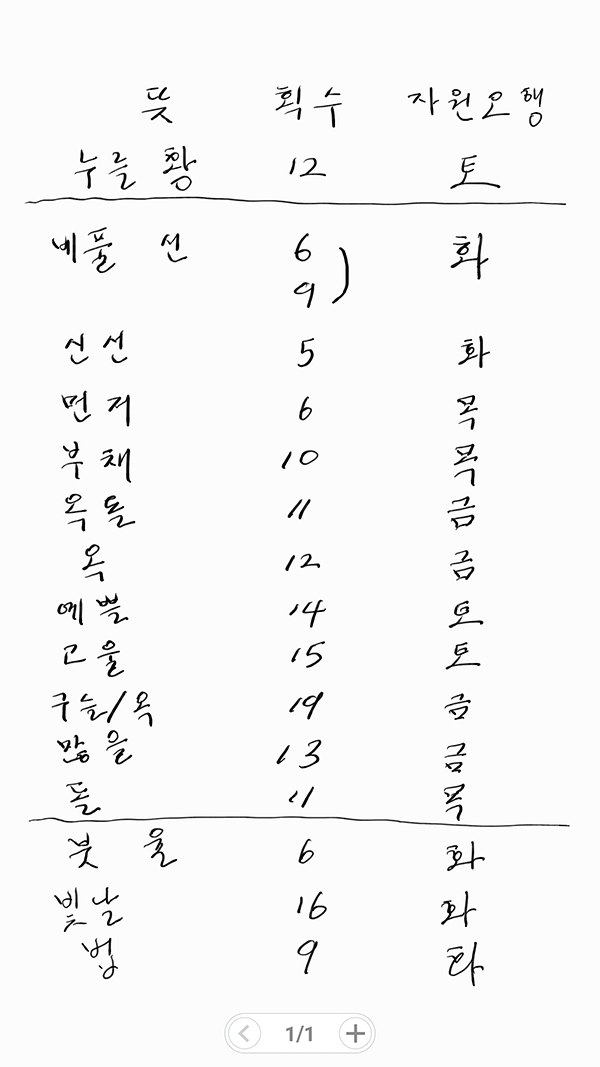 뜻 획수 자원오행
누를 황 12 토
베풀 선 6 화
9
신선 5 화
먼저 6 목
부채 10 목
옥돌 11 금
옥 12 금
예쁠 14 토
고울 15 토
구슬/옥 19 금
많을 13 금
돌 11 목
붓 율 6 화
빛날 16 화
법 9 화
1/1